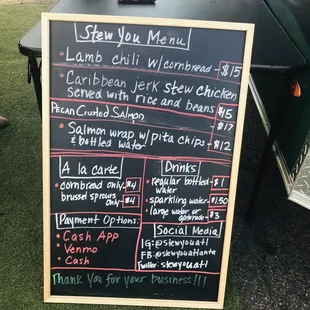 Stew You Menu
Lamb chili w/cornbread - $15
Caribbean jerk stew chicken
Served with rice and beans $15
Pecan Crusted Salmon $17
Salmon wrap w/pita chips - $12
& bottled water
A la carte
cornbread only - $4
brussel sprouts only - $4
Payment Options:
Cash App
Venmo
Cash
Drinks
regular bottled - $1
water
sparkling water - $1.50
large water or - $3
Social Media
IG: @stewyouatl
FB: @stewyouatlanta
Twitter: stewyouatl
Thank you for your business!!!